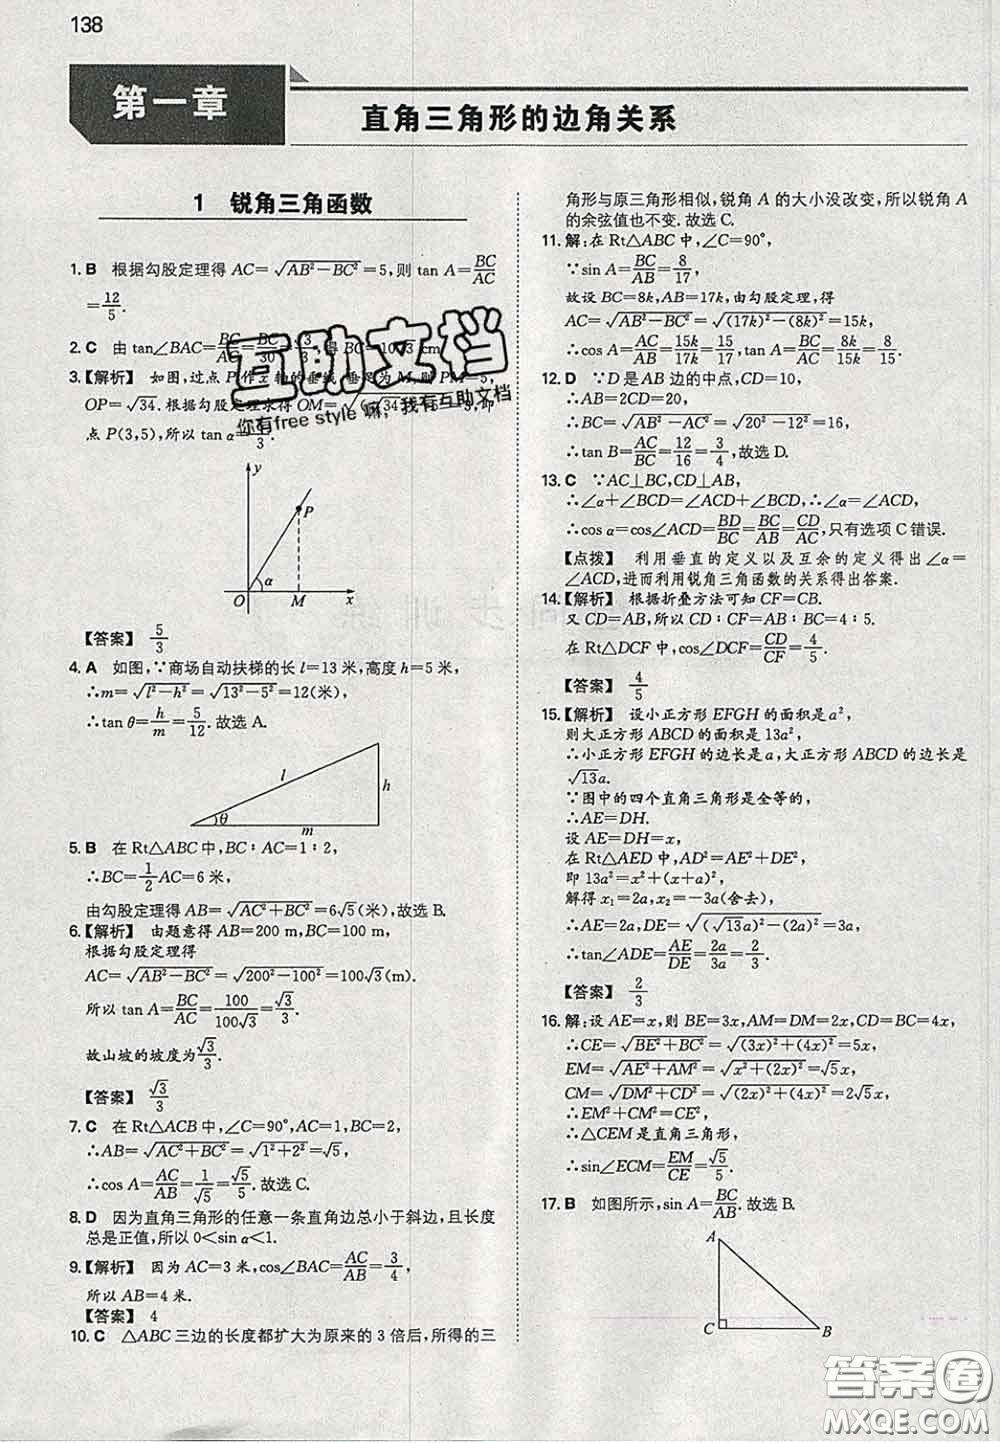 138
第一章
直角三角形的边角关系
1 锐角三角函数
1. B 根据勾股定理得 AC=√(AB²-BC²)=5,则 tan A=BC/AC
=12/5.
2. C 由 tan∠BAC=BC/AC=BC/30=√3/3,得 BC=10√3 cm
3.【解析】 如图,过点 P 作 x 轴的垂线,垂足为 M,则 PM=5,
OP=√34. 根据勾股定理求得 OM=
点 P(3,5),所以 tan α=5/3.
y
P
O
α
M
x
【答案】 5/3
4. A 如图,∵商场自动扶梯的长 l=13 米,高度 h=5 米,
∴m=√(l²-h²)=√(13²-5²)=12(米),
∴tan θ=h/m=5/12.故选 A.
l
h
θ
m
5. B 在 Rt△ABC 中,BC∶AC=1∶2,
∴BC=1/2 AC=6 米,
由勾股定理得 AB=√(AC²+BC²)=6√5(米),故选 B.
6.【解析】 由题意得 AB=200 m,BC=100 m,
根据勾股定理得
AC=√(AB²-BC²)=√(200²-100²)=100√3(m).
所以 tan A=BC/AC=100/(100√3)=√3/3.
故山坡的坡度为√3/3.
【答案】 √3/3
7. C 在 Rt△ACB 中,∠C=90°,AC=1,BC=2,
∴AB=√(AC²+BC²)=√(1²+2²)=√5,
∴cos A=AC/AB=1/√5=√5/5.故选 C.
8. D 因为直角三角形的任意一条直角边总小于斜边,且长度
总是正值,所以 0<sin α<1.
9.【解析】 因为 AC=3 米,cos∠BAC=AC/AB=3/4,
所以 AB=4 米.
【答案】 4
10. C △ABC 三边的长度都扩大为原来的 3 倍后,所得的三
角形与原三角形相似,锐角 A 的大小没改变,所以锐角 A
的余弦值也不变.故选 C.
11. 解:在 Rt△ABC 中,∠C=90°,
∵sin A=BC/AB=8/17,
故设 BC=8k,AB=17k,由勾股定理,得
AC=√(AB²-BC²)=√((17k)²-(8k)²)=15k,
∴cos A=AC/AB=15k/17k=15/17,tan B=AC/BC=15k/8k=8/15.
12. D ∵D 是 AB 边的中点,CD=10,
∴AB=2CD=20,
∴BC=√(AB²-AC²)=√(20²-12²)=16,
∴tan B=AC/BC=12/16=3/4,故选 D.
13. C ∵AC⊥BC,CD⊥AB,
∴∠α+∠BCD=∠ACD+∠BCD,∴∠α=∠ACD,
∴cos α=cos∠ACD=BD/BC=BC/AB=CD/AC,只有选项 C 错误.
【点拨】 利用垂直的定义以及互余的定义得出∠α=
∠ACD,进而利用锐角三角函数的关系得出答案.
14.【解析】 根据折叠方法可知 CF=CB.
又 CD=AB,所以 CD∶CF=AB∶BC=4∶5.
在 Rt△DCF 中,cos∠DCF=CD/CF=4/5.
【答案】 4/5
15.【解析】 设小正方形 EFGH 的面积是 a²,
则大正方形 ABCD 的面积是 13a²,
∴小正方形 EFGH 的边长是 a,大正方形 ABCD 的边长是
√13a.
∵图中的四个直角三角形是全等的,
∴AE=DH.
设 AE=DH=x,
在 Rt△AED 中,AD²=AE²+DE²,
即 13a²=x²+(x+a)²,
解得 x₁=2a,x₂=-3a(舍去),
∴AE=2a,DE=√((√13a)²-(2a)²)=3a,
∴tan∠ADE=AE/DE=2a/3a=2/3.
【答案】 2/3
16. 解:设 AE=x,则 BE=3x,AM=DM=2x,CD=BC=4x,
∴CE=√(BE²+BC²)=√((3x)²+(4x)²)=5x,
EM=√(AE²+AM²)=√(x²+(2x)²)=√5x,
CM=√(DM²+CD²)=√((2x)²+(4x)²)=2√5x,
∴EM²+CM²=CE²,
∴△CEM 是直角三角形,
∴sin∠ECM=EM/CE=√5/5.
17. B 如图所示,sin A=BC/AB.故选 B.
A
C
B
互助文档
你有free style 嘛,我有互助文档
答案圈
MXQE.COM